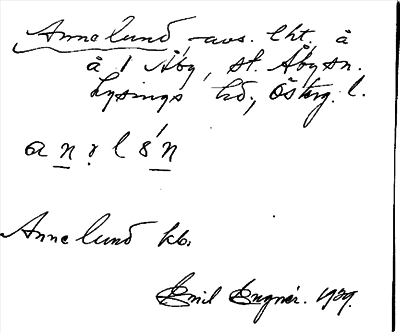 Annelund, avs. lht, å
å 1 Åby, st. Åby sn.
Lysings hd, Österg. l.
a n̲ ṛ l ś n̲
Annelund kb.
Emil Engnér. 1939.